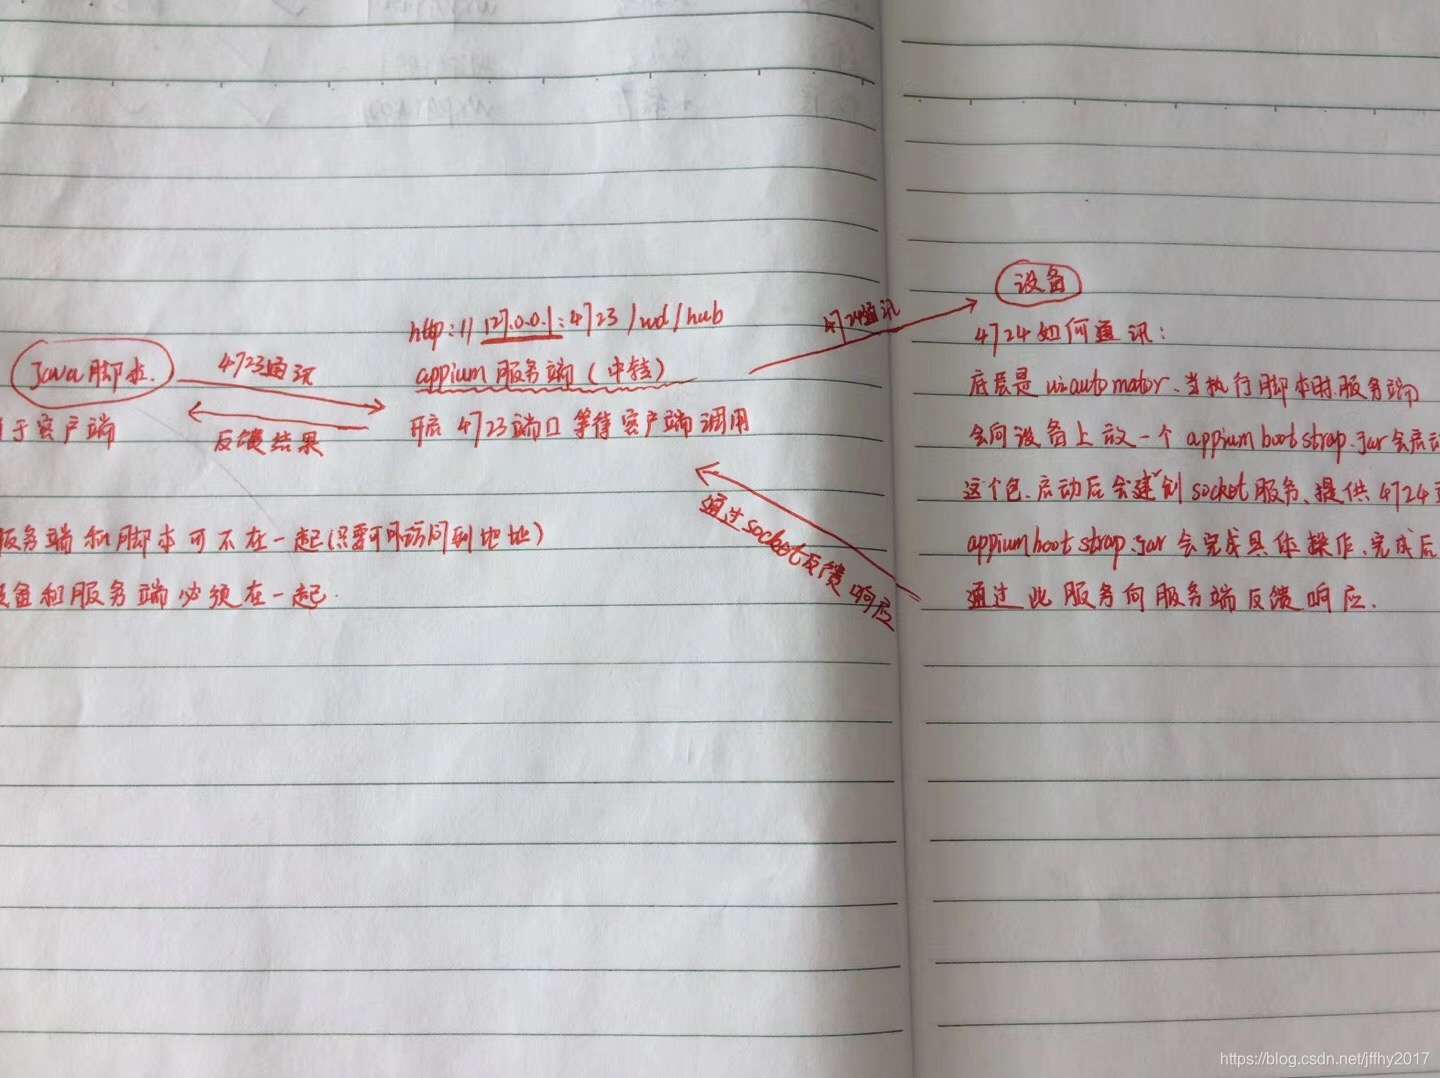 设备
http://127.0.0.1:4723/wd/hub
4724通讯
4724如何通讯:
Java脚本.
4723通讯
appium服务端(中转)
底层是uiautomator.当执行脚本时.服务端
于客户端
反馈结果
开启4723端口等待客户端调用
会向设备上放一个appiumbootstrap.jar会启动
这个包.启动后会建创socket服务、提供4724
通过socket反馈响应
服务端和脚本可不在一起(只要可以访问到地址)
appiumbootstrap.jar会完成具体操作.完成后
和服务端必须在一起.
通过此服务向服务端反馈响应.
https://blog.csdn.net/jffhy2017